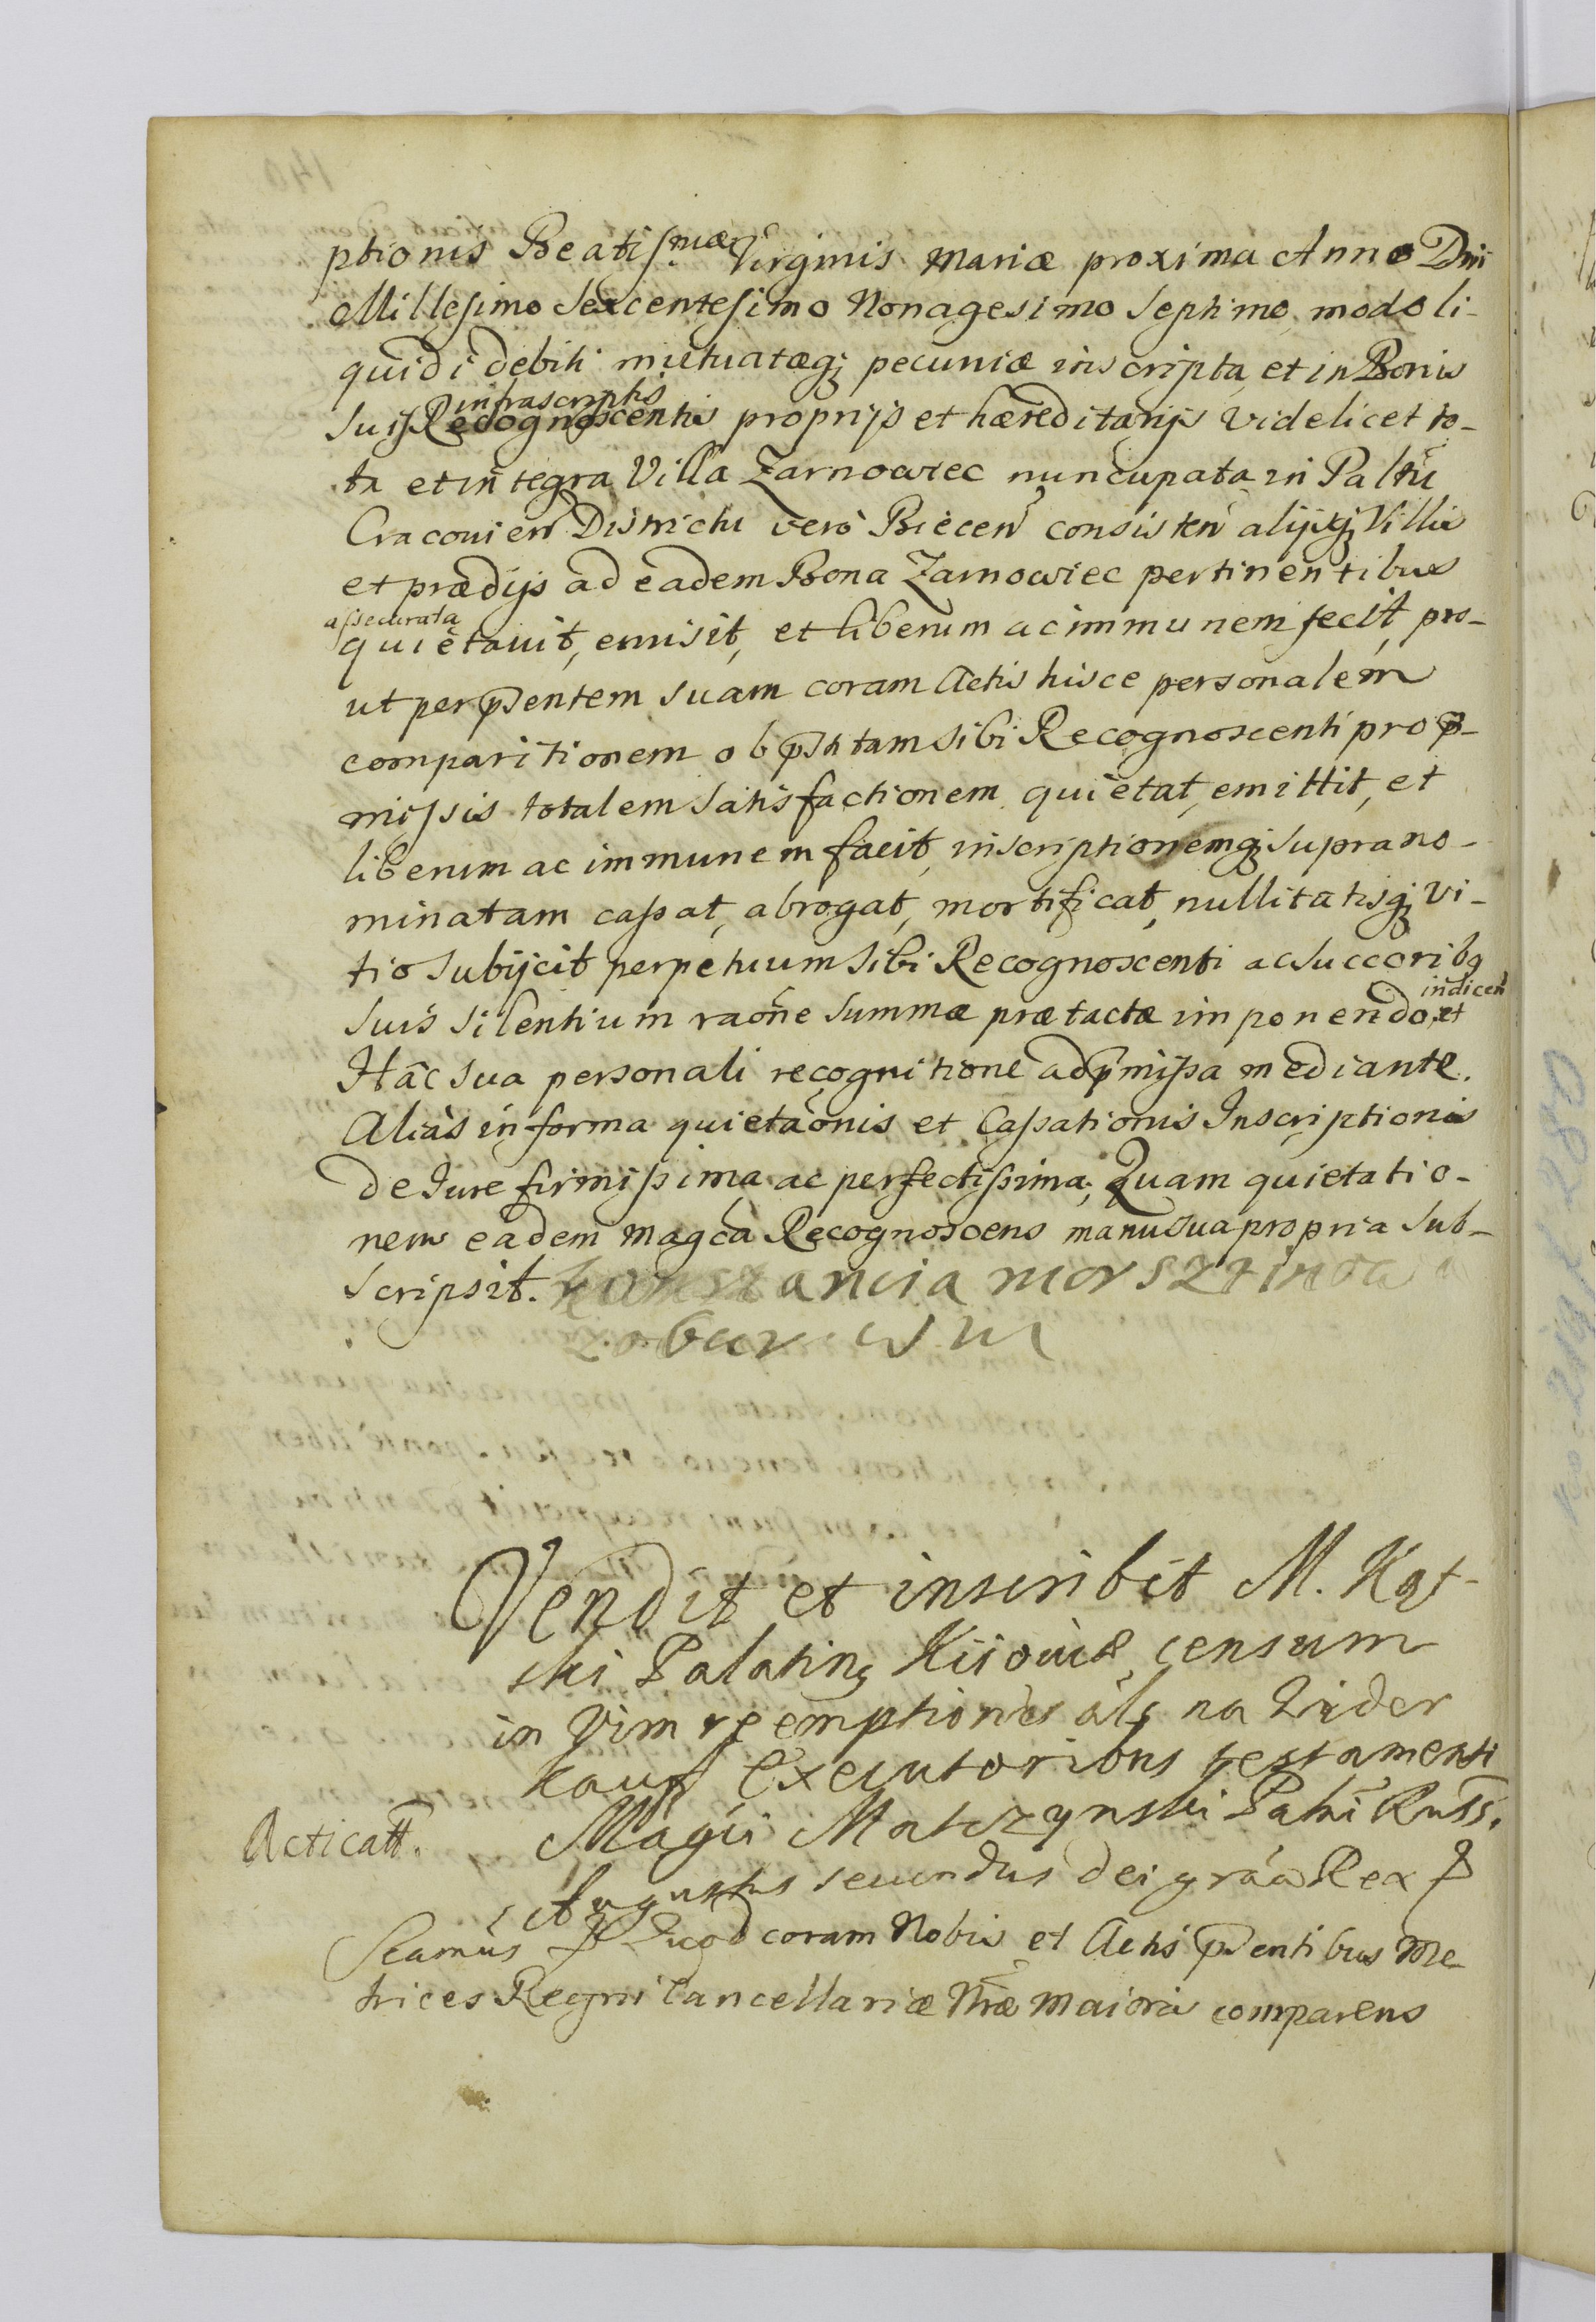 ptionis Beatiss.mæ Virginis Mariæ proxima Anno Dni
Millesimo Sexcentesimo Nonagesimo Septimo modo li-
quidi debiti mutuatæq; pecuniæ inscripta et in Bonis
infrascriptis
suis Recognoscentis proprijs et hæreditarijs videlicet to-
ta et integra Villa Zarnowiec nuncupata in Paltu
Cracovien Districtu vero Biecen consisten alijsq; Villis
et prædijs ad eadem Bona Zarnowiec pertinentibus
assecurata
quietavit, emisit, et liberum ac immunem fecit, pro-
ut per pńsentem suam coram Actis hisce personalem
comparitionem ob pństitam sibi Recognoscenti pro p-
missis totalem satisfactionem quietat, emittit, et
liberum ac immunem facit, inscriptionemq; suprano-
minatam cassat, abrogat, mortificat, nullitatisq; vi-
tio subijcit perpetuum sibi Recognoscenti ac succoribq
indicen
suis silentium raone summæ prætactæ imponendo, et
Hac sua personali recognitione ad pmissa mediante.
Alias in forma quietaonis et Cassationis Inscriptionis
de Iure firmissima ac perfectissima, Quam quietatio-
nem eadem Magca Recognoscens manu sua propria sub-
scripsit. konstancia morsztinowa
z obur wm
Vendit et inscribit M. Kąt-
ski Palatinq Kiioviæ censum
in vim reemptionis als na Wider
kauf Executoribus testamenti
Acticatt. Magci Matczynski Palni Russ.
Augustus secundus Dei graa Rex
Seamus Quod coram Nobis et Actis pńsentibus Me-
trices Regni Cancellariæ Nræ Maioris comparens